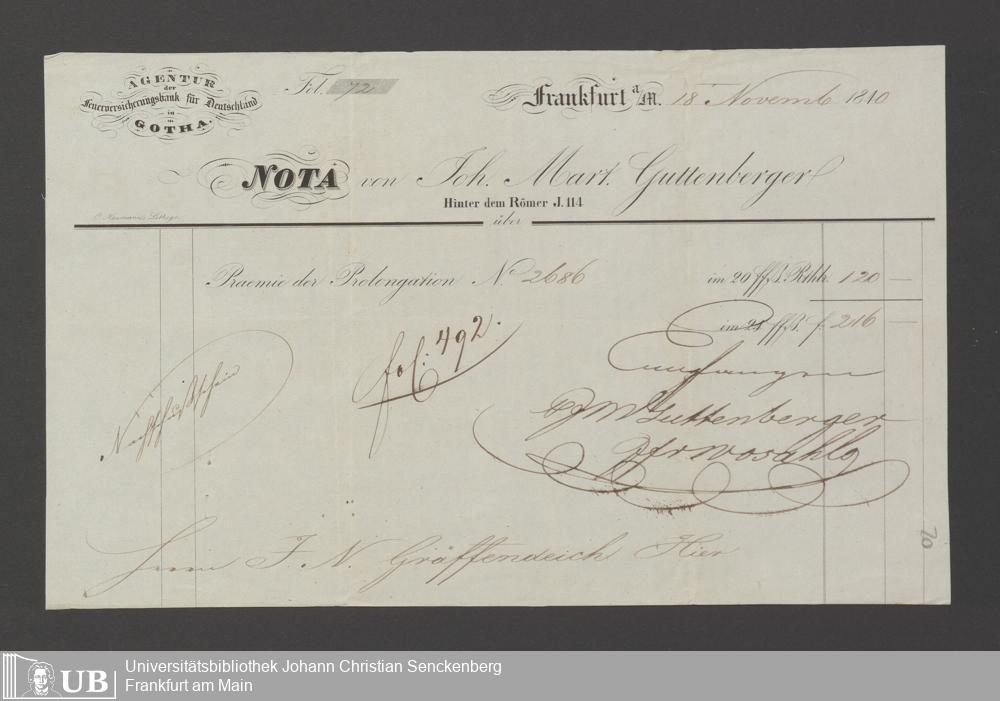 AGENTUR
der
Feuerversicherungsbank für Deutschland
in
GOTHA.
Fol. 72
Frankfurt a/M. 18 Novemb 1840
NOTA von Joh. Mart. Guttenberger
Hinter dem Römer J. 114
über
Praemie der Prolongation No. 2686 im 20 ffs. Rthlr. 120 —
im 24 ffs. f. 216 —
fol: 492.
Nachschußschein
Empfangen
JM Guttenberger
Herrn J. N. Gräffendeich Hier
70
UB
Universitätsbibliothek Johann Christian Senckenberg
Frankfurt am Main